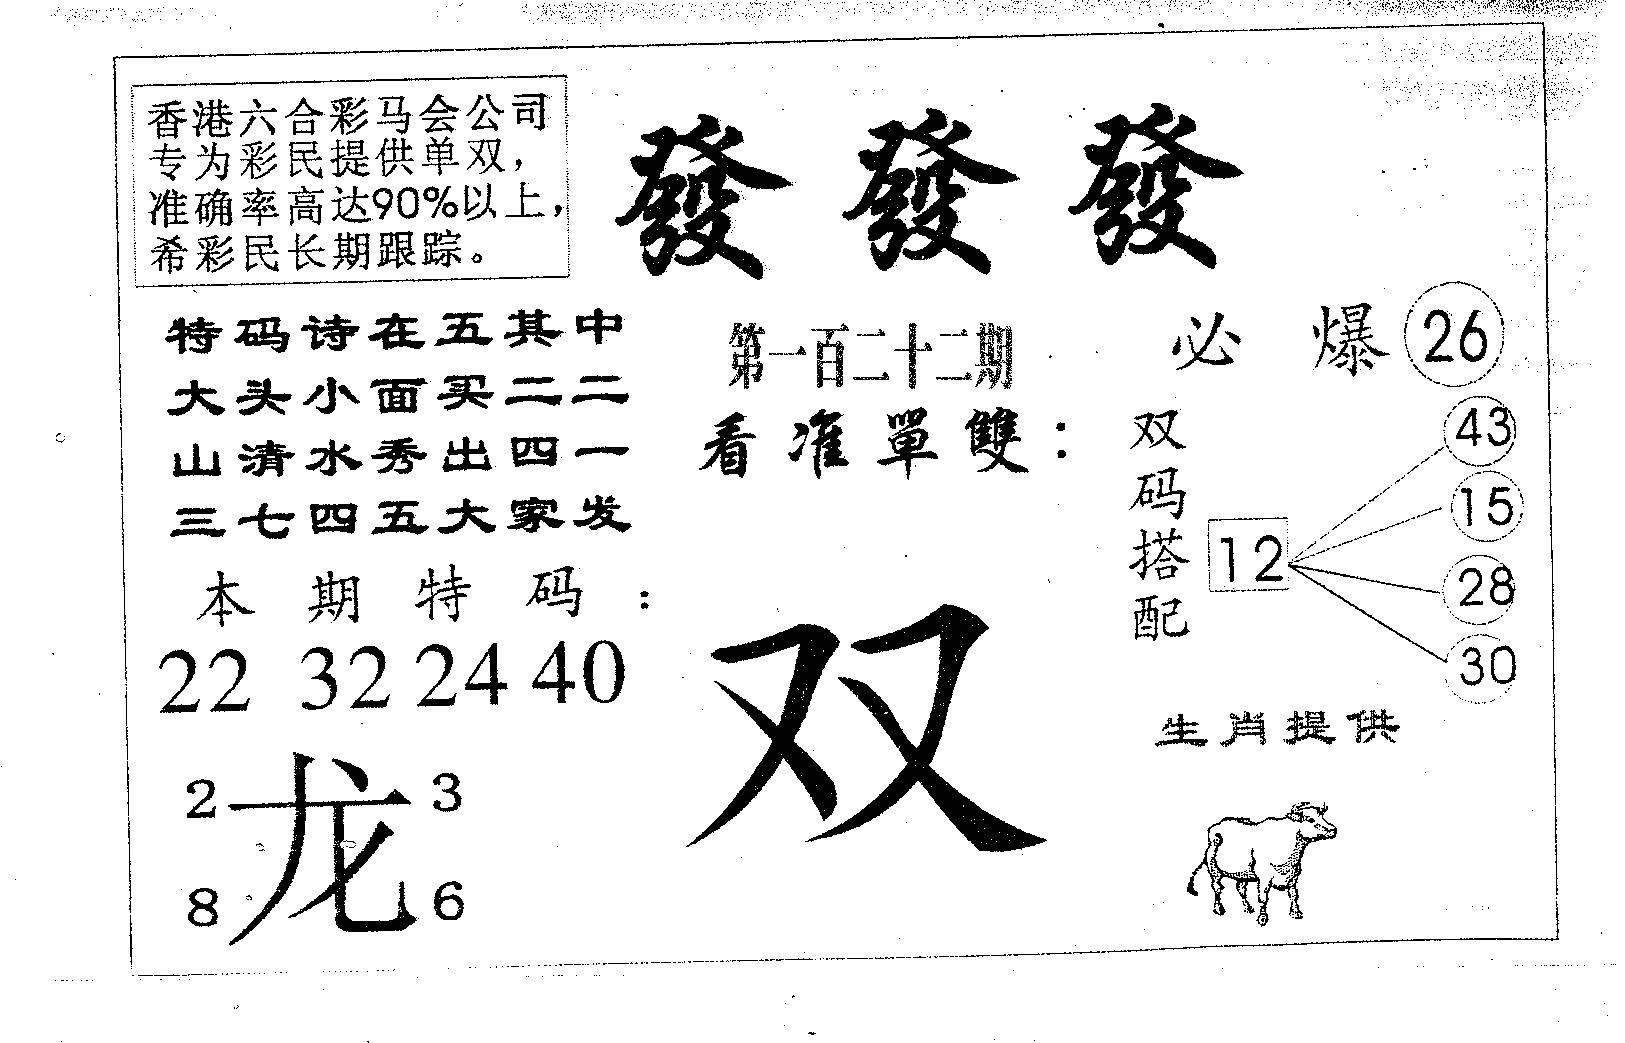 香港六合彩马会公司
专为彩民提供单双，
准确率高达90%以上，
希彩民长期跟踪。
發發發
特码诗在五其中
大头小面买二二
山清水秀出四一
三七四五大家发
第一百二十二期
看准單雙：
双
必爆26
双码搭配
12
43
15
28
30
本期特码：
22 32 24 40
2 3
龙
8 6
生肖提供